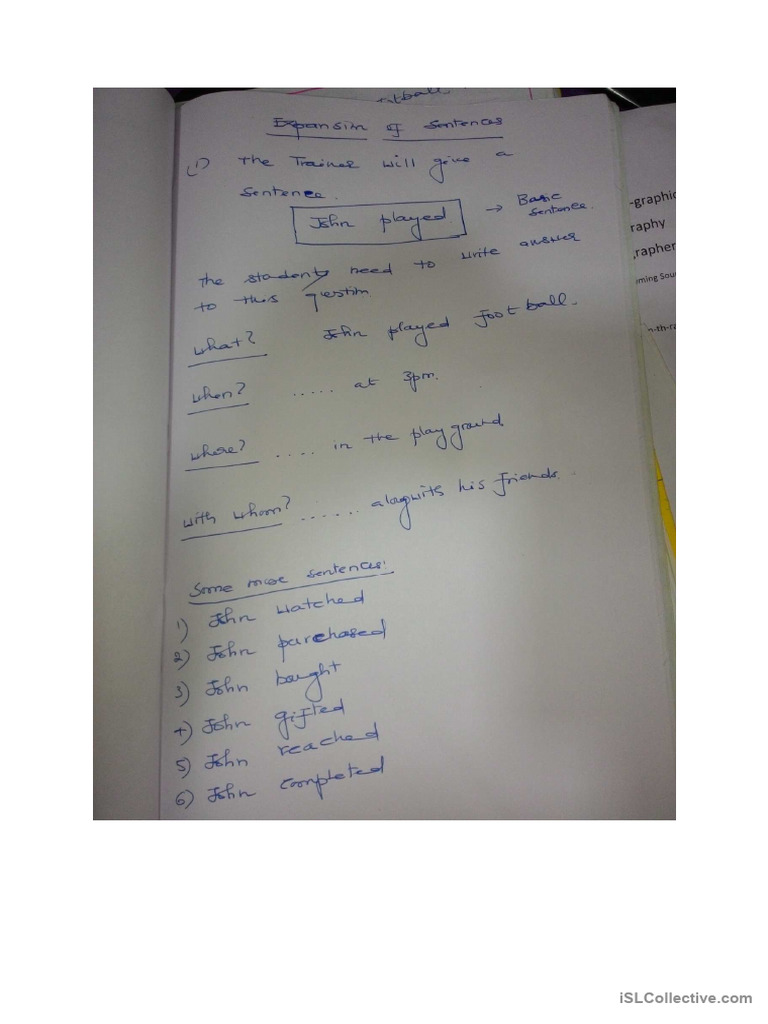 tball
Expansion of Sentences
1) The Trainer will give a
sentence.
John played. → Basic
sentence.
The students need to write answer
to this question.
what? John played football.
when? ..... at 3pm.
where? .... in the playground.
with whom? ...... alongwith his friends.
Some more sentences:
1) John watched
2) John purchased
3) John bought
4) John gifted
5) John reached
6) John completed
-graphic
raphy
rapher
oming Sou
n-th-ra
iSLCollective.com